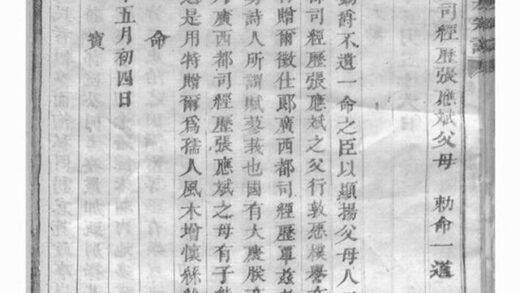 司經歷張應斌父母 勅命一道
爵不遺一命之臣以顯揚父母人
司經歷張應斌之父行敦
贈爾徵仕郎廣西都司經歷覃茲
詩人所謂賦蓼莪也國有大慶朕
廣西都司經歷張應斌之母有子
是用特贈爾爲孺人風木增懷絲
命
五月初四日
寶